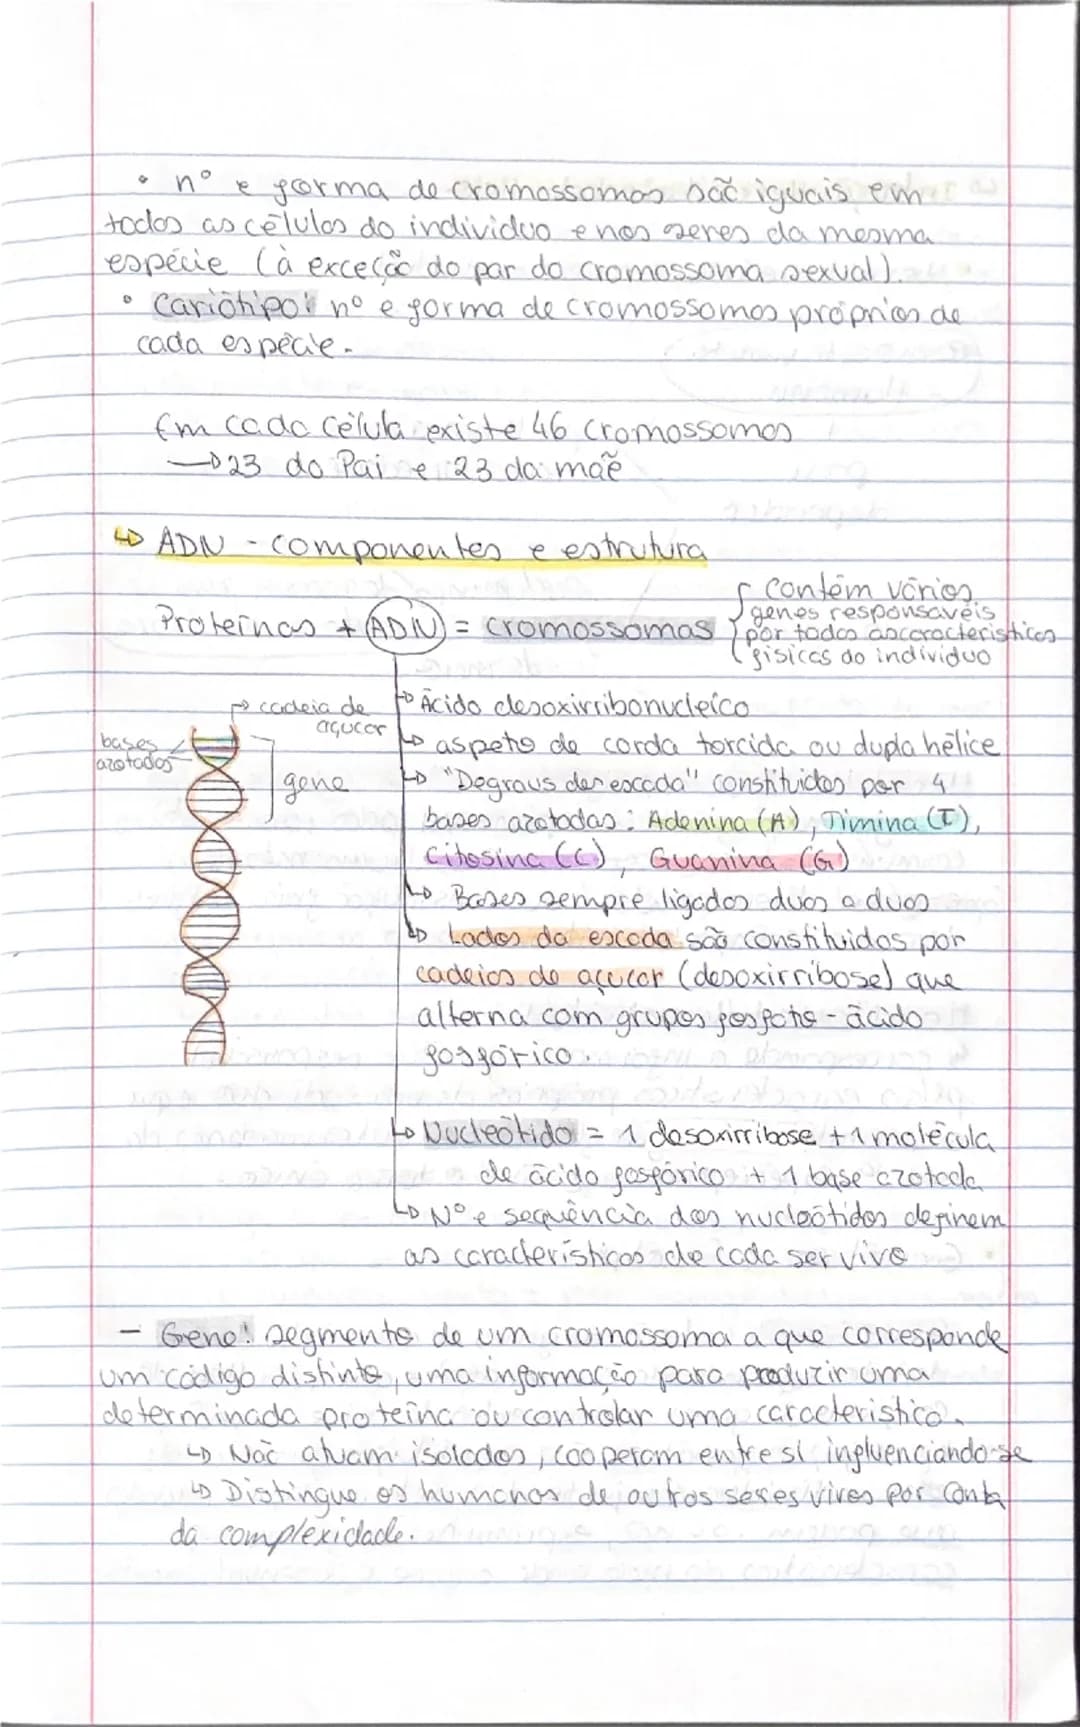 • nº e forma de cromossomas são iguais em
todas as células do individuo e nos seres da mesma
espécie (à exceção do par do cromossoma sexual).
• Cariótipo: nº e forma de cromossomas próprios de
cada espécie.
Em cada célula existe 46 cromossomas
→ 23 do Pai e 23 da mãe
↳ ADN - componentes e estrutura
Proteínas + ADN = cromossomas
contém vários
genes responsavéis
por todas as caracteristicas
fisicas do individuo
↳ Ácido desoxirribonucleíco
→ cadeia de
açucar
↳ aspeto de corda torcida ou dupla hélice
bases
azotadas
gene
↳ "Degraus da escada" constituidos por 4
bases azotadas: Adenina (A), Timina (T),
Citosina (C), Guanina (G)
↳ Bases sempre ligadas duas a duas
↳ Lados da escada são constituidos por
cadeias de açucar (desoxirribose) que
alterna com grupos fosfato - ácido
fosfórico.
↳ Nucleótido = 1 desoxirribose + 1 molécula
de ácido fosfórico + 1 base azotada
↳ Nº e sequência dos nucleótidos definem
as características de cada ser vivo
- Gene: segmento de um cromossoma a que corresponde
um código distinto, uma informação para produzir uma
determinada proteína ou controlar uma caracteristica.
↳ Não atuam isolados, cooperam entre si influenciando-se
↳ Distingue os humanos de outros seres vivos por conta
da complexidade.